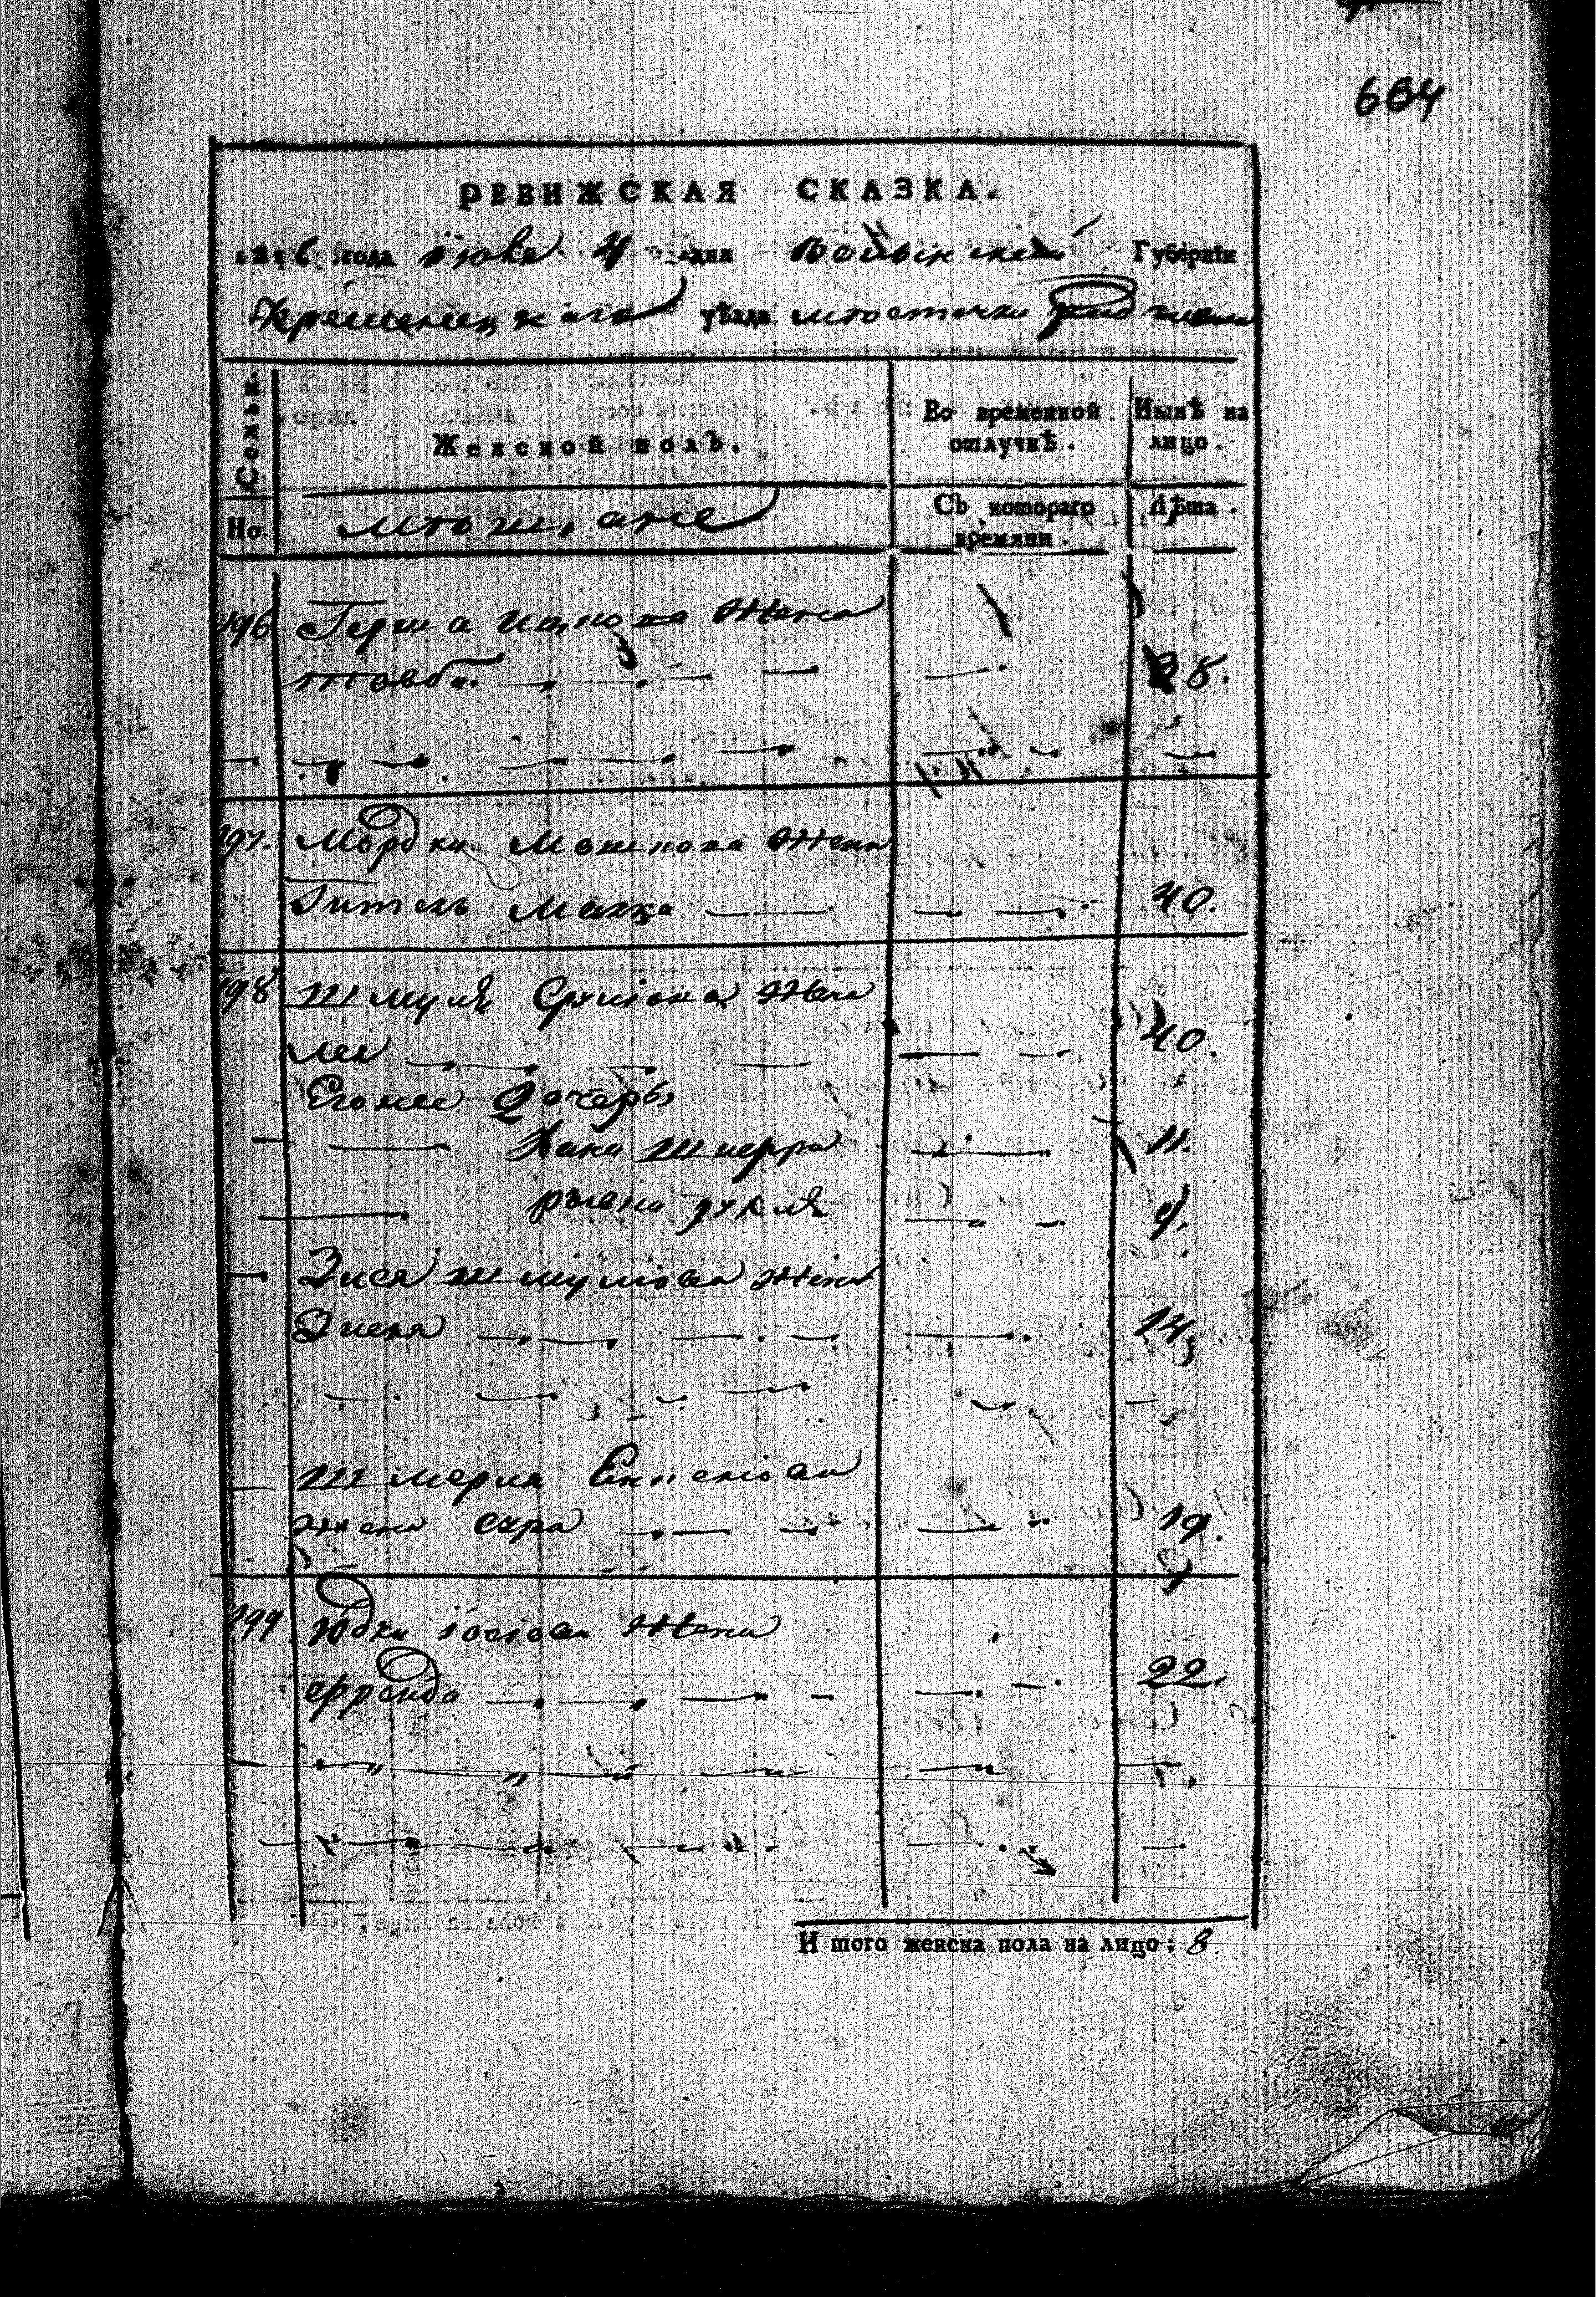 664
РЕВИЖСКАЯ СКАЗКА.
1816 года Июня 4 дня Волынской Губерніи
Кременецкаго уѣзда мѣстечка
Семьи.
Женской полъ.
Во временной отлучкѣ.
Нынѣ на лицо.
Но.
мѣщане
Съ котораго времяни.
Лѣта.
196 Герша Ицкова жена
товба. 28.
197. Мордки Мошкова жена
Гитель Малка 40.
198 Шмуля Срулiова жена
Лея 40.
Егожее дочерь
Хана Шперра 11.
рухля 9.
Зися Шмулiова жена
Зисля 14.
Шмерия
жена сура 19.
199 Юдки Iосiова жена
ефрейда 22.
И того женска пола на лицо: 8.